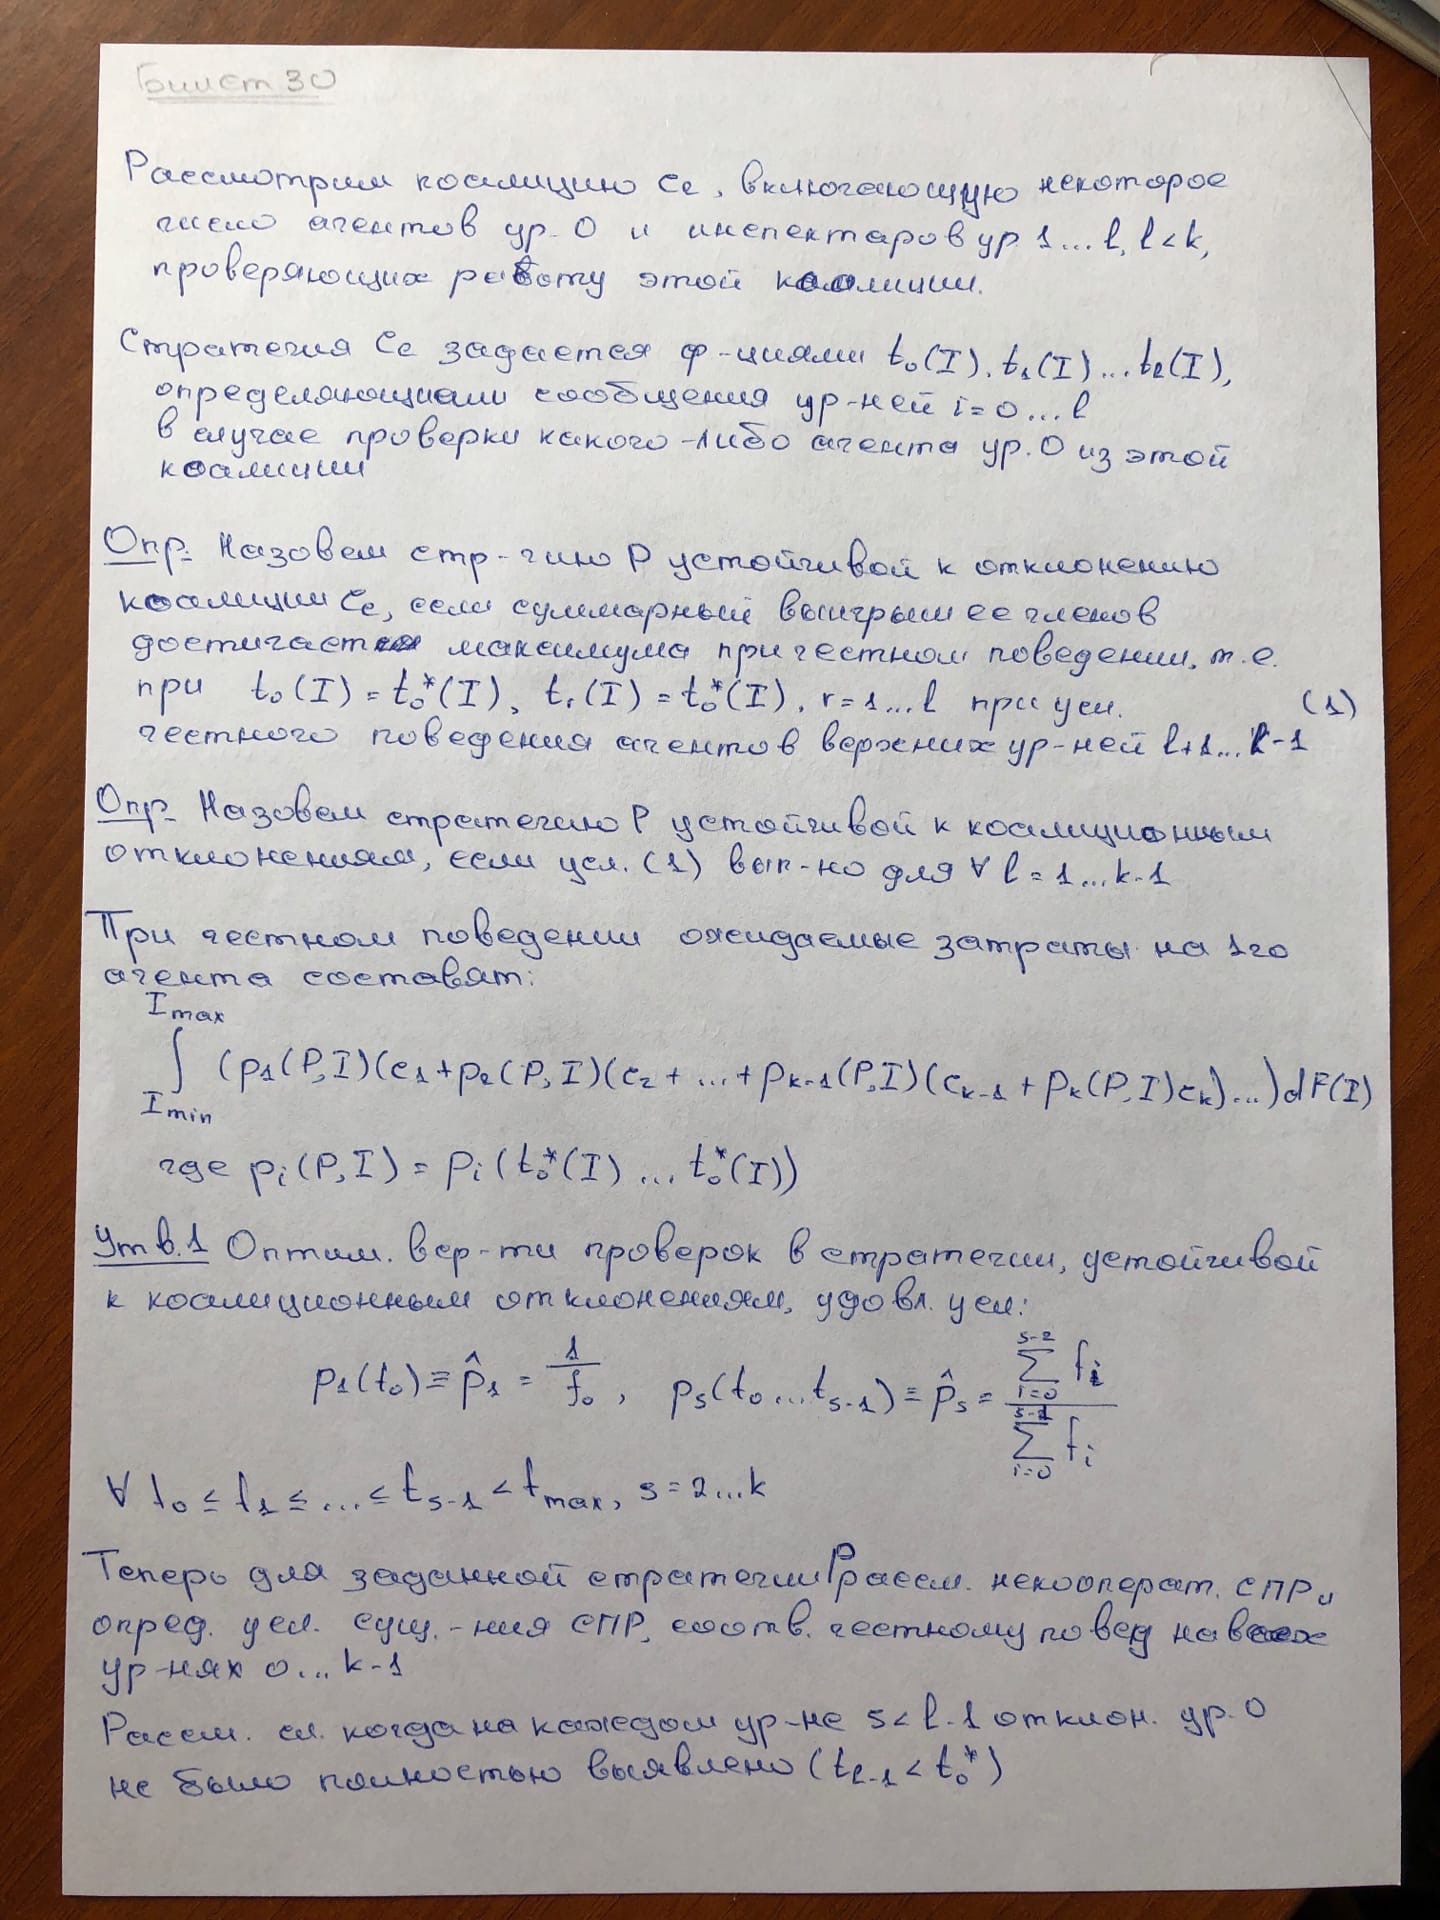 Билет 30
Рассмотрим коалицию Cℓ, включающую некоторое
число агентов ур. 0 и инспектаров ур 1...l, l<k,
проверяющих работу этой коалиции.
Стратегия Cℓ задается ф-циями t₀(I), t₁(I)...tℓ(I),
определяющими сообщения ур-ней i=0...l
в случае проверки какого-либо агента ур. 0 из этой
коалиции
Опр. Назовем стр-гию P устойчивой к отклонению
коалиции Cℓ, если суммарный выигрыш ее членов
достигает максимума при честном поведении, т.е.
при t₀(I) = t₀*(I), tᵣ(I) = t₀*(I), r=1...l при усл. (1)
честного поведения агентов верхних ур-ней l+1...k-1
Опр. Назовем стратегию P устойчивой к коалиционным
отклонениям, если усл. (1) вып-но для ∀ l = 1...k-1
При честном поведении ожидаемые затраты на 1го
агента составят:
∫_{I min}^{I max} (p₁(P,I)(c₁+p₂(P,I)(c₂+...+p_{k-1}(P,I)(c_{k-1}+p_k(P,I)c_k)...)dF(I)
где pᵢ(P,I) = pᵢ(t₀*(I)...t₀*(I))
Утв.1 Оптим. вер-ти проверок в стратегии, устойчивой
к коалиционным отклонениям, удовл. усл:
p₁(t₀) ≡ p̂₁ = 1/f₀, p_s(t₀...t_{s-1}) ≡ p̂_s = ∑_{i=0}^{s-2} fᵢ / ∑_{i=0}^{s-1} fᵢ
∀ t₀ ≤ t₁ ≤ ... ≤ t_{s-1} < t_{max}, s=2...k
Теперь для заданной стратегии P рассм. некооперат. СПР и
опред. усл. сущ.-ния СПР, соотв. честному повед на всех
ур-нях 0...k-1
Рассм. сл. когда на каждом ур-не s<l-1 отклон. ур. 0
не было полностью выявлено (t_{ℓ-1} < t₀*)